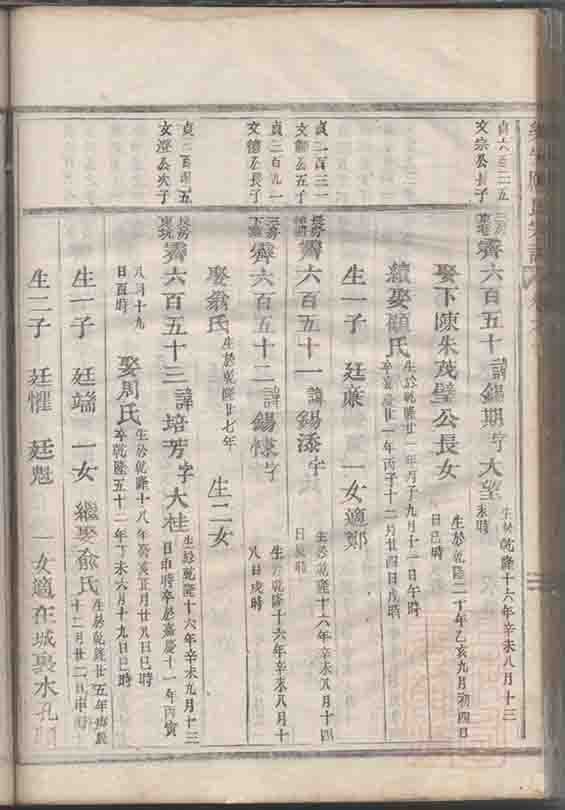 貞六百三五
文宗公長子
齊六百五十 諱錫期 字大望 生於乾隆十六年辛未八月十三
未時
娶下陳朱茂璧公長女 生於乾隆二十年乙亥九月初四日
日巳時
續娶顧氏 生於乾隆廿一年丙子九月十一日午時
卒嘉慶廿一年丙子十二月廿四日戌時
生一子 廷 一女適鄭
貞二百三一
文 公五子
長房
齊六百五十一 諱錫添 字 生於乾隆十六年辛未八月十四
日 時
貞二百九一
文德公長子
齊六百五十二 諱錫 字 生於乾隆十六年辛未八月十
八日戌時
娶 氏 生於乾隆廿七年 生二女
貞二百 五
文澄公次子
長房
齊六百五十三 諱培芳 字大桂 生於乾隆十六年辛未九月十三
日申時卒於嘉慶十一年丙寅
八月十九
日酉時 娶周氏 生於乾隆十八年癸亥正月廿八日巳時
卒乾隆五十二年丁未六月十九日巳時
生一子 廷端 一女 繼娶俞氏 生於乾隆廿五年庚辰
十二月廿二日申時
生二子 廷懼 廷魁 一女適在城裏水孔